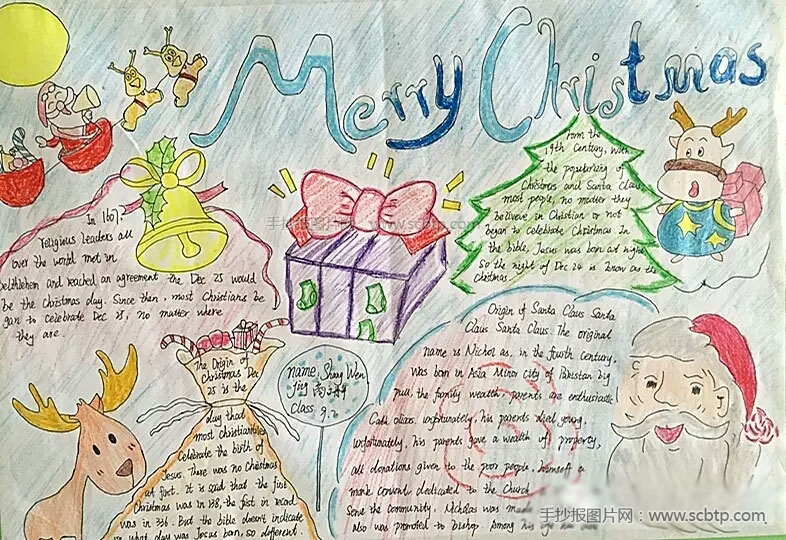 Merry Christmas
From the
19th Century, with
the popularizing of
Christmas and Santa Claus
most people, no matter they
believe in Christian or not
began to celebrate Christmas In
the bible, Jesus was born at night
So the night of Dec 24 is know as the
Chritmas.
手抄报图片网：www.scbtp.com
In 1607,
religious leaders all
over the world met in
betlhlehem and reached an agreement the Dec 25 would
be the Christmas day. Since then, most Christians be
gan to celebrate Dec 25, no matter where
they are.
The Origin of
Christmas Dec
25 is the
day that
most Christianities
Celebrate the birth of
Jesus. There was no Christmas
at fist. It is said that the first
Christmas was in 138, the fist in recod
was in 336. But the bible doesn't indicate
in what day was Jesus born, so different.
name. Shang Wen
Jing
Class 9.2
Origin of Santa Claus Santa
Claus Santa Claus. The original
name is Nichol as. in the fourth Century,
was born in Asia Minor city of Pakistan big
pull, the family wealth. parents are enthusiastic
Cath olizes. unfortunately, his parents died young.
Unfortunately, his parents gave a wealth of property,
all donations given to the poor people, himself a
monk convent, dedicated to the Church
Serve the community. Nicholas was made
also was promoted to bishop Among his
手抄报图片网：www.scbtp.com